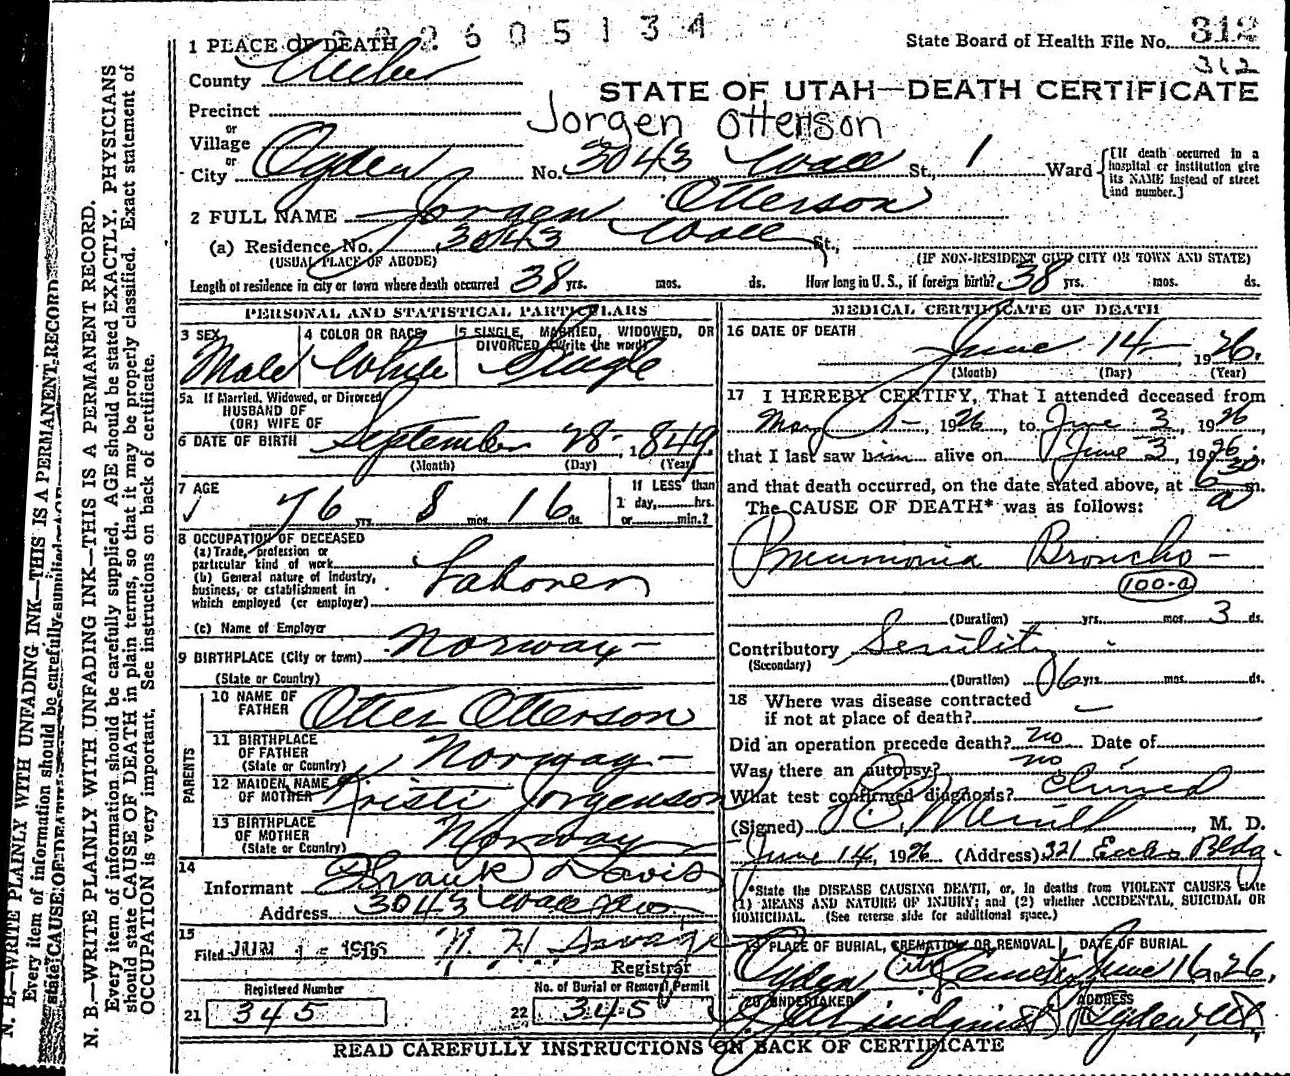 2260 5134
State Board of Health File No. 312
312
1 PLACE OF DEATH
County Weber
STATE OF UTAH—DEATH CERTIFICATE
Precinct
Jorgen Otterson
or
Village
or
City Ogden No. 3043 Wall St., 1 Ward
[If death occurred in a hospital or institution give its NAME instead of street and number.]
2 FULL NAME Jorgen Otterson
(a) Residence, No. 3043 Wall St.,
(USUAL PLACE OF ABODE) (IF NON-RESIDENT GIVE CITY OR TOWN AND STATE)
Length of residence in city or town where death occurred 38 yrs. mos. ds. How long in U. S., if foreign birth? 38 yrs. mos. ds.
PERSONAL AND STATISTICAL PARTICULARS
3 SEX Male
4 COLOR OR RACE White
5 SINGLE, MARRIED, WIDOWED, OR DIVORCED (write the word) Single
5a If Married, Widowed, or Divorced
HUSBAND OF
(OR) WIFE OF
6 DATE OF BIRTH September 28- 1849
(Month) (Day) (Year)
7 AGE 76 yrs. 8 mos. 16 ds.
If LESS than
1 day, hrs.
or min.?
8 OCCUPATION OF DECEASED
(a) Trade, profession or
particular kind of work Laborer
(b) General nature of industry,
business, or establishment in
which employed (or employer)
(c) Name of Employer
9 BIRTHPLACE (City or town) Norway-
(State or Country)
PARENTS
10 NAME OF FATHER Otter Otterson
11 BIRTHPLACE OF FATHER (State or Country) Norway-
12 MAIDEN NAME OF MOTHER Kristi Jorgenson
13 BIRTHPLACE OF MOTHER (State or Country) Norway
14
Informant Frank Davis
Address 3043 Wall Ave
15
Filed JUN 1926
Registrar
Registered Number
21 345
No. of Burial or Removal Permit
22 345
MEDICAL CERTIFICATE OF DEATH
16 DATE OF DEATH
June 14- 1926.
(Month) (Day) (Year)
17 I HEREBY CERTIFY, That I attended deceased from
May 1-, 1926, to June 3, 1926,
that I last saw him alive on June 3, 1926;
and that death occurred, on the date stated above, at 6 30 a m.
The CAUSE OF DEATH* was as follows:
Pneumonia Broncho-
100-a
(Duration) yrs. mos. 3 ds.
Contributory Senility
(Secondary)
(Duration) yrs. mos. ds.
18 Where was disease contracted
if not at place of death? -
Did an operation precede death? no Date of
Was there an autopsy? no
What test confirmed diagnosis? Clinical
(Signed) Merrill, M. D.
June 14, 1926 (Address) 321 Eccles Bldg.
*State the DISEASE CAUSING DEATH, or, in deaths from VIOLENT CAUSES state
(1) MEANS AND NATURE OF INJURY; and (2) whether ACCIDENTAL, SUICIDAL OR
HOMICIDAL. (See reverse side for additional space.)
19 PLACE OF BURIAL, CREMATION OR REMOVAL DATE OF BURIAL
Ogden City Cemetery June 16 1926.
20 UNDERTAKER ADDRESS
Lindquist Ogden Ut.
READ CAREFULLY INSTRUCTIONS ON BACK OF CERTIFICATE
N. B.—WRITE PLAINLY WITH UNFADING INK—THIS IS A PERMANENT RECORD.
Every item of information should be carefully supplied. AGE should be stated EXACTLY. PHYSICIANS
should state CAUSE OF DEATH in plain terms, so that it may be properly classified. Exact statement of
OCCUPATION is very important. See instructions on back of certificate.
N. B.—WRITE PLAINLY WITH UNFADING INK—THIS IS A PERMANENT RECORD
Every item of information should be carefully supplied
state CAUSE OF DEATH